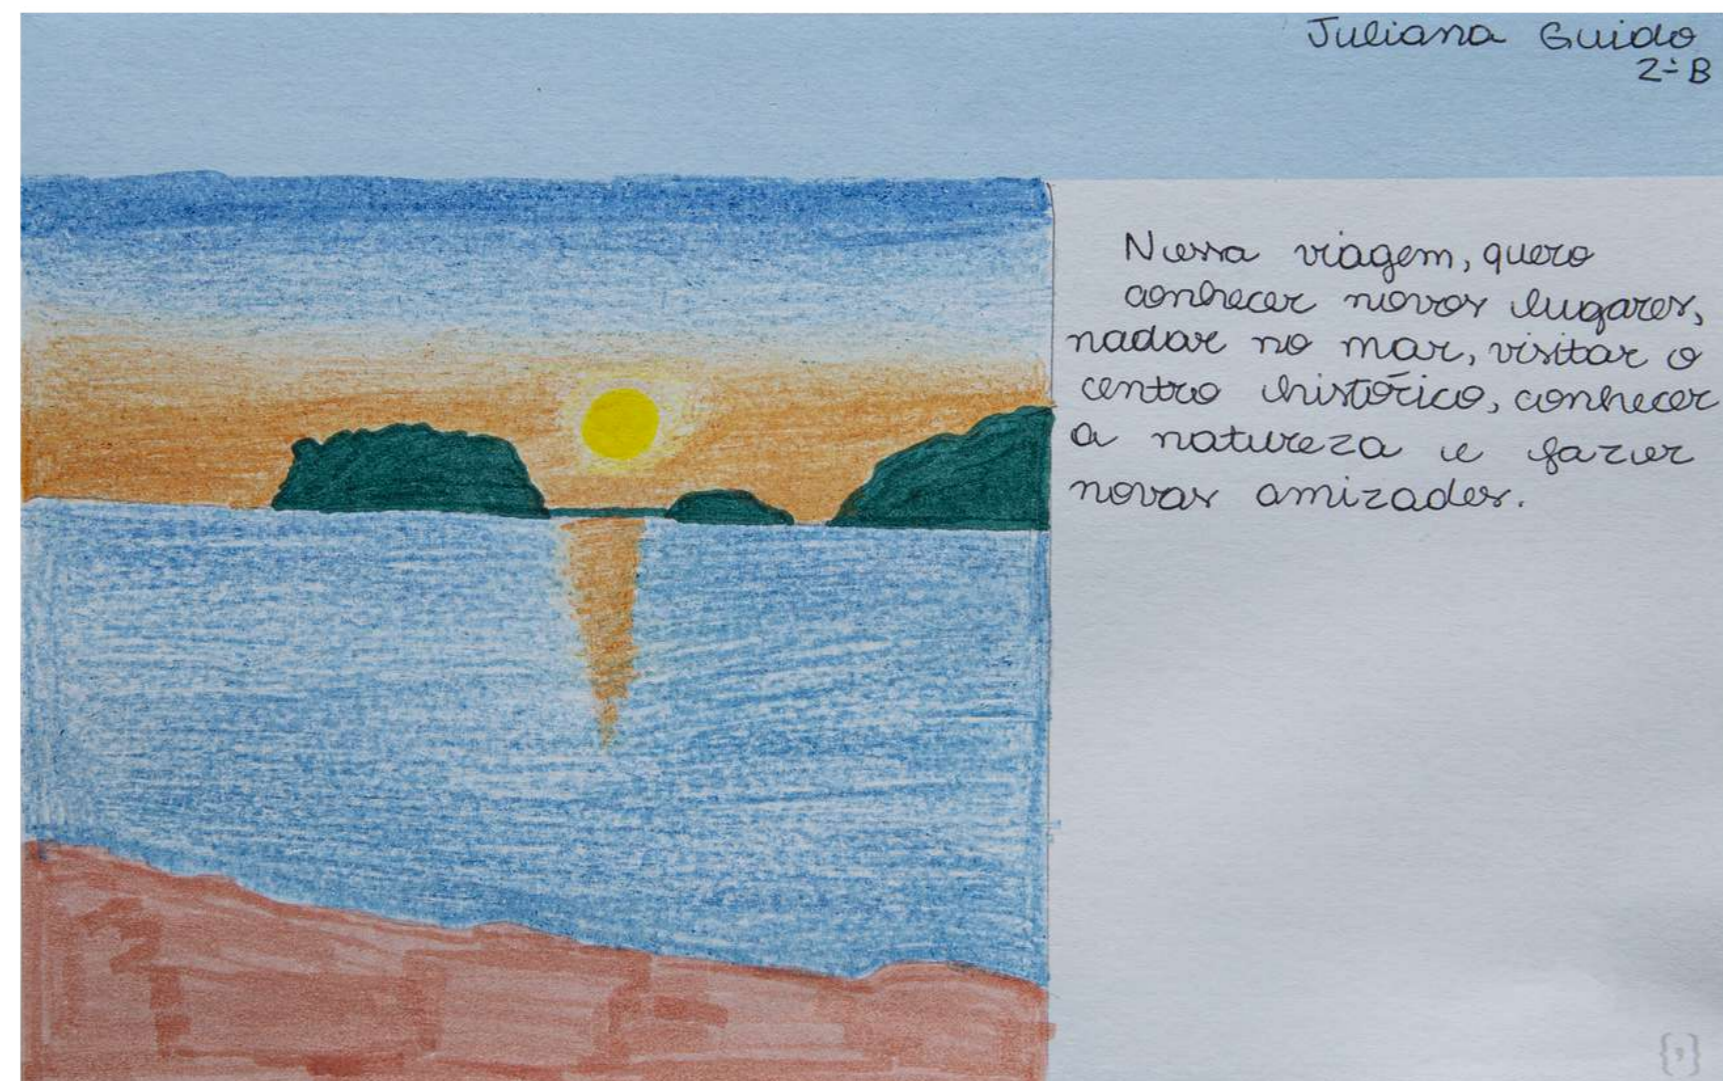 Juliana Guido
2ª B
Nessa viagem, quero
conhecer novos lugares,
nadar no mar, visitar o
centro histórico, conhecer
a natureza e fazer
novas amizades.
{,}